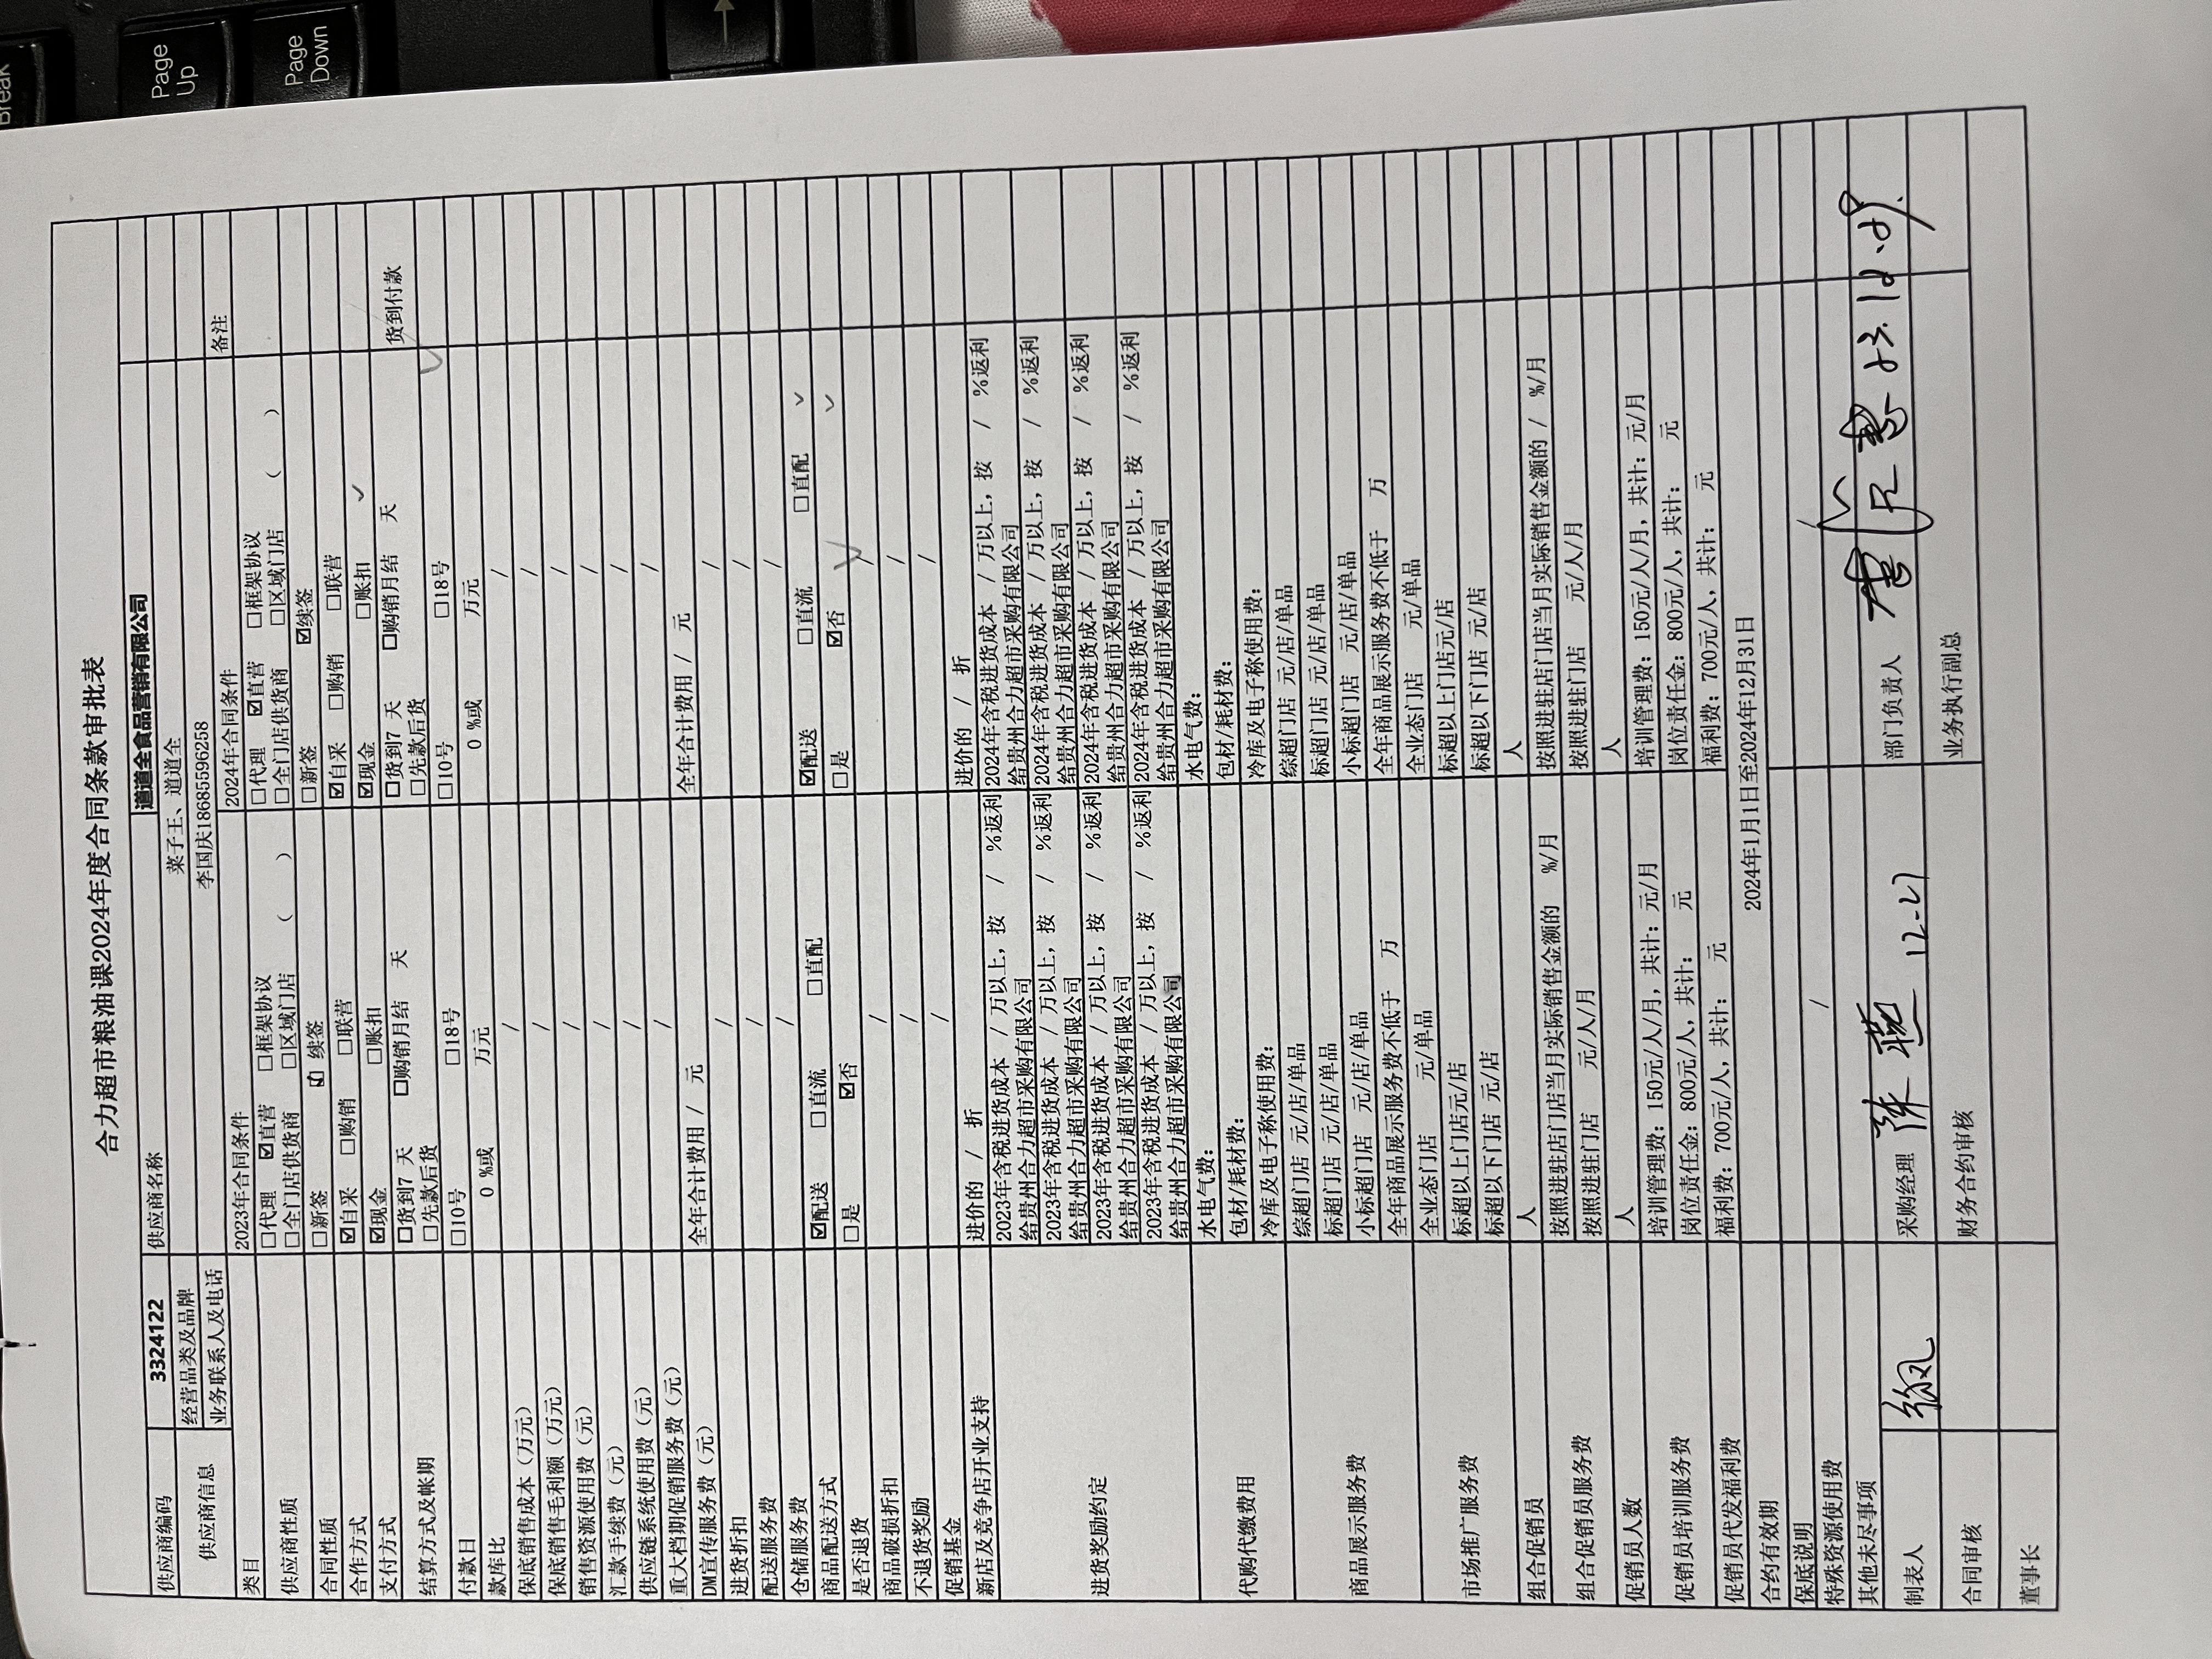 Break
Page Up
Page Down
合力超市粮油课2024年度合同条款审批表
供应商编码 3324122 供应商名称 道道全食品营销有限公司
供应商信息 经营品类及品牌 菜子王、道道全
业务联系人及电话 李国庆18685596258
类目 2023年合同条件 2024年合同条件 备注
供应商性质 □代理 ☑直营 □框架协议 □代理 ☑直营 □框架协议
□全门店供货商 □区域门店 （ ） □全门店供货商 □区域门店 （ ）
合同性质 □新签 ☑ 续签 □新签 ☑续签
合作方式 ☑自采 □购销 □联营 ☑自采 □购销 □联营
支付方式 ☑现金 □账扣 ☑现金 □账扣
结算方式及帐期 □货到7 天 □购销月结 天 □货到7 天 □购销月结 天 货到付款
□先款后货 □先款后货
付款日 □10号 □18号 □10号 □18号
款库比 0 %或 万元 0 %或 万元
保底销售成本（万元） / /
保底销售毛利额（万元） / /
销售资源使用费（元） / /
汇款手续费（元） / /
供应链系统使用费（元） / /
重大档期促销服务费（元） / /
DM宣传服务费（元） 全年合计费用 / 元 全年合计费用 / 元
进货折扣 / /
配送服务费 / /
仓储服务费 / /
商品配送方式 ☑配送 □直流 □直配 ☑配送 □直流 □直配
是否退货 □是 ☑否 □是 ☑否
商品破损折扣 / /
不退货奖励 / /
促销基金 / /
新店及竞争店开业支持 进价的 / 折 进价的 / 折
进货奖励约定 2023年含税进货成本 / 万以上，按 / %返利给贵州合力超市采购有限公司 2024年含税进货成本 / 万以上，按 / %返利给贵州合力超市采购有限公司
2023年含税进货成本 / 万以上，按 / %返利给贵州合力超市采购有限公司 2024年含税进货成本 / 万以上，按 / %返利给贵州合力超市采购有限公司
2023年含税进货成本 / 万以上，按 / %返利给贵州合力超市采购有限公司 2024年含税进货成本 / 万以上，按 / %返利给贵州合力超市采购有限公司
2023年含税进货成本 / 万以上，按 / %返利给贵州合力超市采购有限公司 2024年含税进货成本 / 万以上，按 / %返利给贵州合力超市采购有限公司
代购代缴费用 水电气费： 水电气费：
包材/耗材费： 包材/耗材费：
冷库及电子称使用费： 冷库及电子称使用费：
商品展示服务费 综超门店 元/店/单品 综超门店 元/店/单品
标超门店 元/店/单品 标超门店 元/店/单品
小标超门店 元/店/单品 小标超门店 元/店/单品
全年商品展示服务费不低于 万 全年商品展示服务费不低于 万
市场推广服务费 全业态门店 元/单品 全业态门店 元/单品
标超以上门店元/店 标超以上门店元/店
标超以下门店 元/店 标超以下门店 元/店
组合促销员 人 人
组合促销员服务费 按照进驻店门店当月实际销售金额的 %/月 按照进驻店门店当月实际销售金额的 / %/月
按照进驻门店 元/人/月 按照进驻门店 元/人/月
促销员人数 人 人
促销员培训服务费 培训管理费：150元/人/月，共计： 元/月 培训管理费：150元/人/月，共计： 元/月
岗位责任金：800元/人，共计： 元 岗位责任金：800元/人，共计： 元
促销员代发福利费 福利费：700元/人，共计： 元 福利费：700元/人，共计： 元
合约有效期 2024年1月1日至2024年12月31日
保底说明
特殊资源使用费 / /
其他未尽事项
制表人 采购经理 陈燕 12-27 部门负责人
合同审核 财务合约审核 业务执行副总
董事长